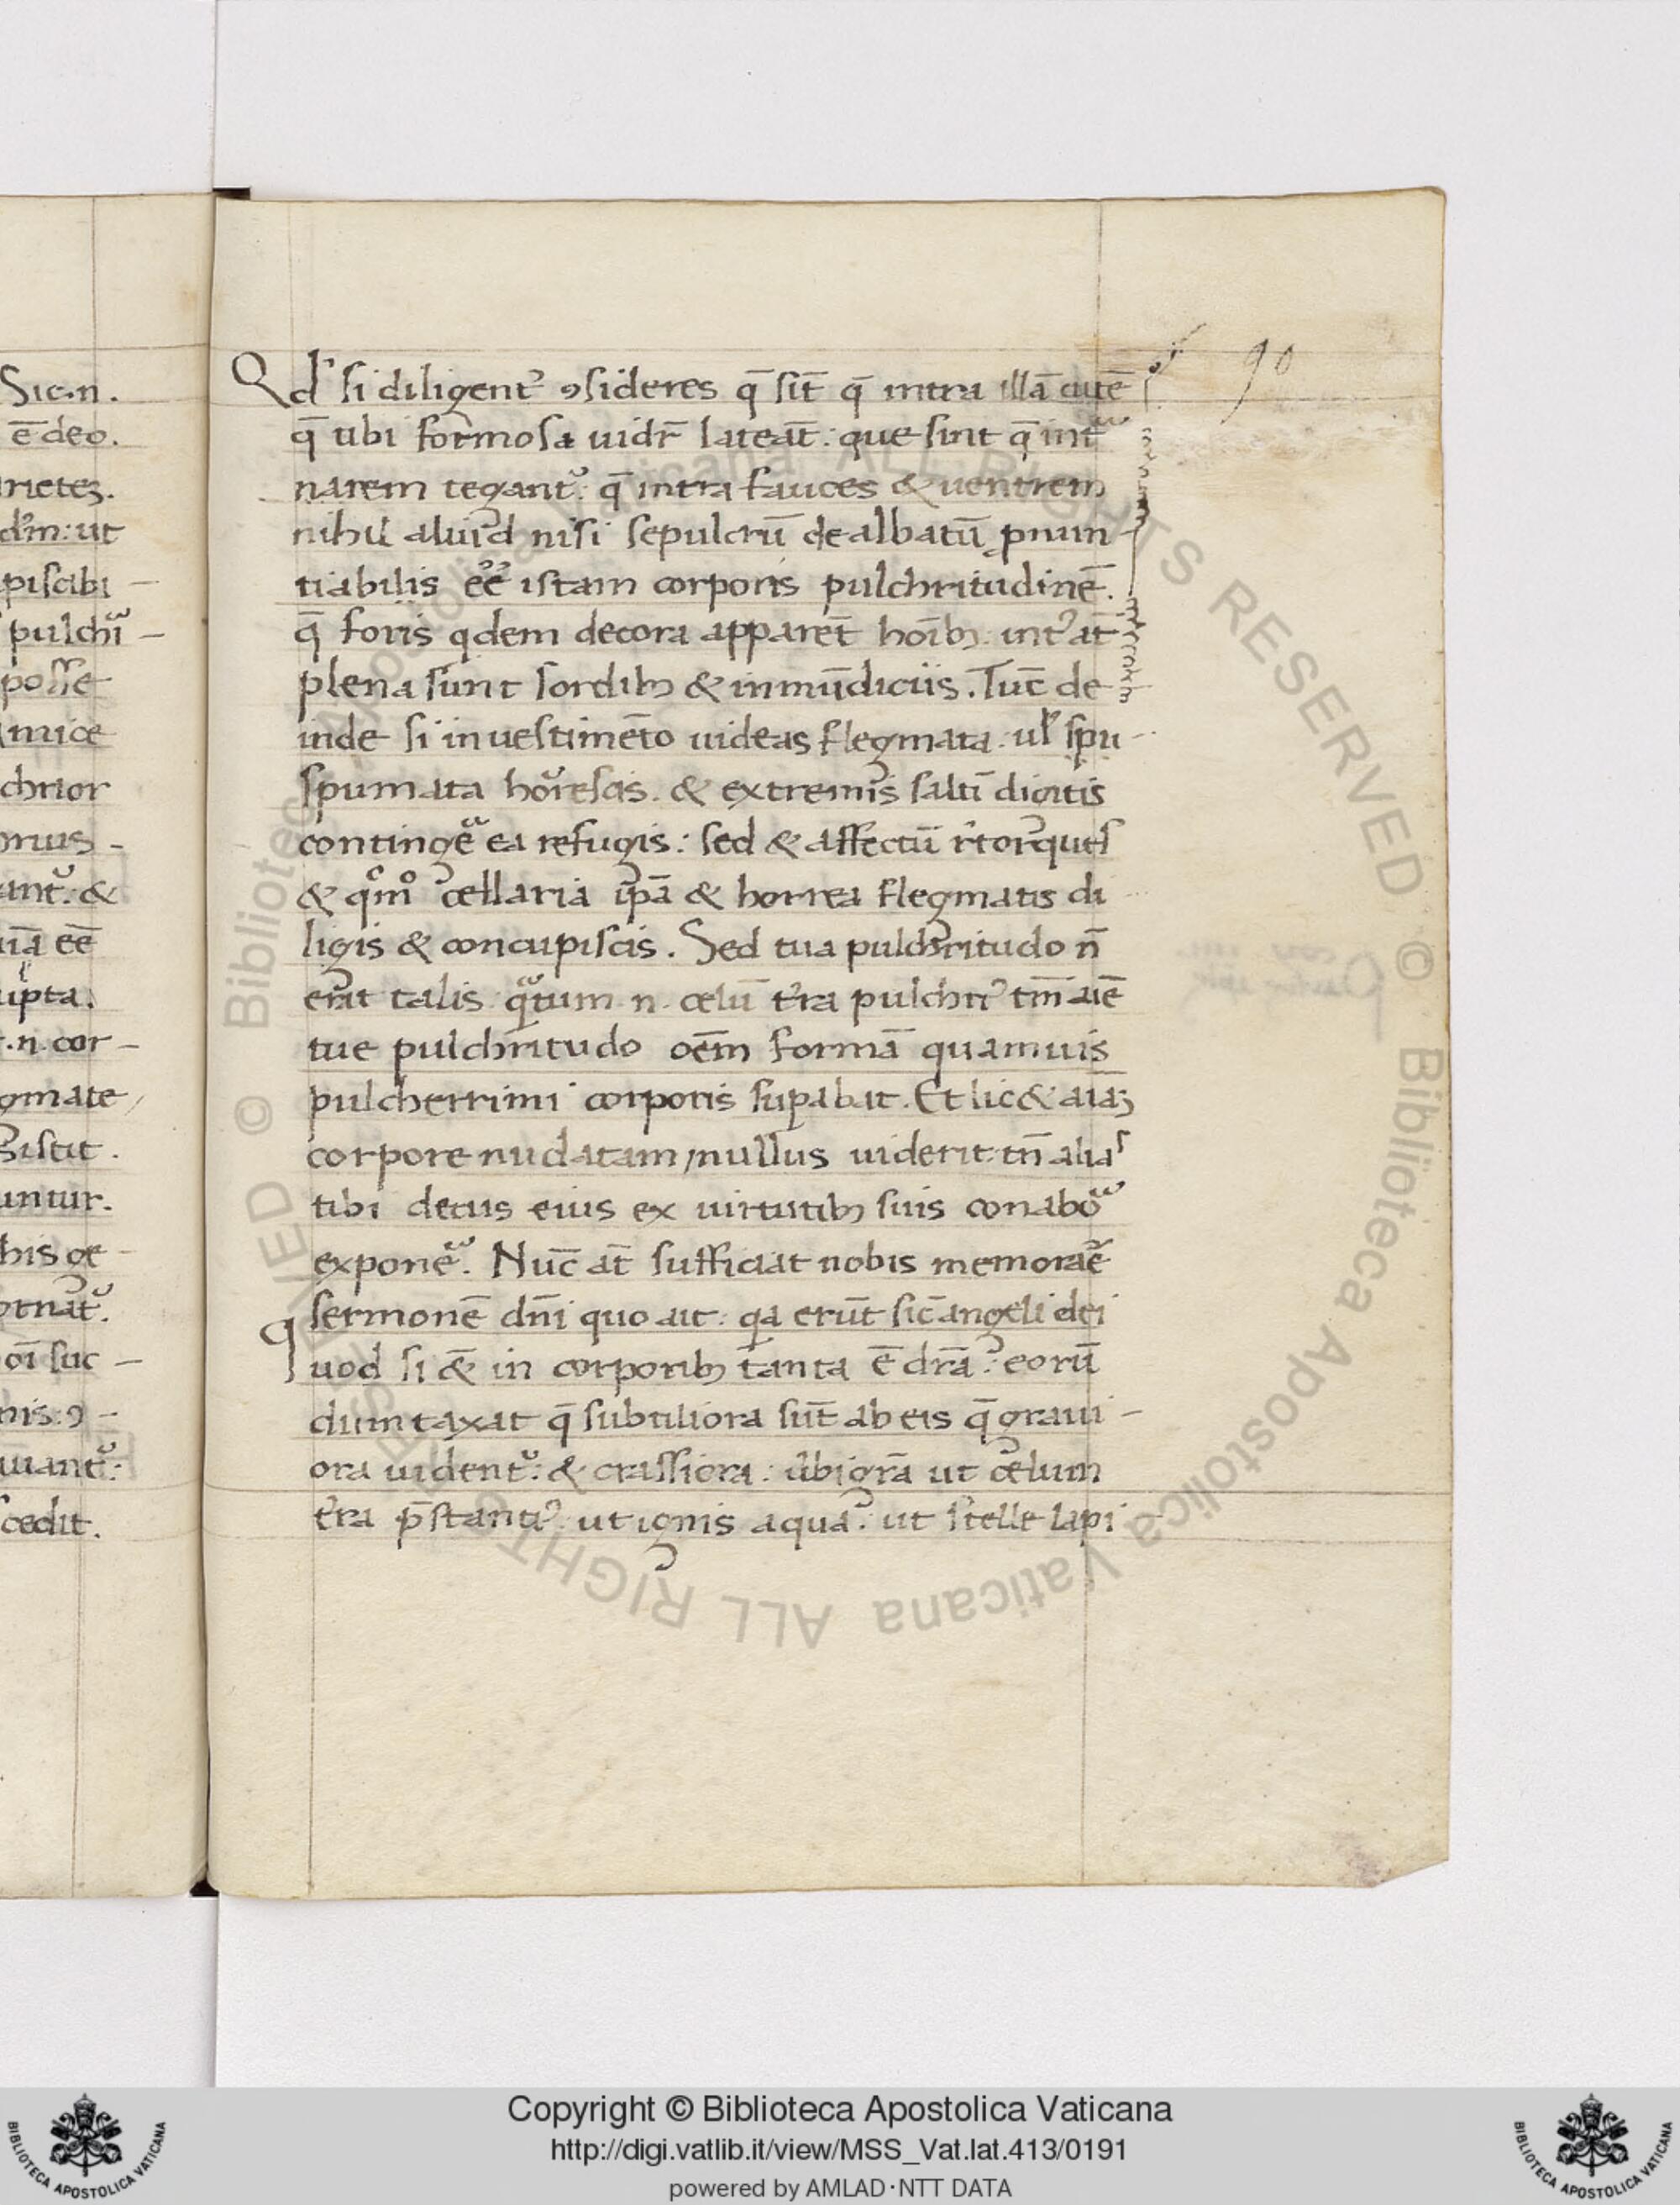 Sic.n.
ē deo.
rietē.
dm̄: ut
piscibi –
pulchī –
posse
Amice
chrior
ant᷑. &
uiā eē
upta.
.n. cor –
gmate
sistit.
untur.
his ge –
oī suc –
nis: ꝯ –
uiant᷑:
cedit.
90
Qd si diligent᷑ ꝯsideres q̄ sīt q̄ intra illā cutē
q̄ tibi formosa uidr̄ lateāt: que sint q̄ intᵃ
narem tegant᷑. q̄ intra fauces & uentrem
nihil aliud nisi sepulcrū dealbatū pnun –
tiabilis eē istam corporis pulchritudinē.
q̄ foris qdem decora apparēt hoībꝫ. int᷑ at̄
plena sunt sordibꝫ & inmūdiciis. Tūc de
inde si in uestimēto uideas flegmata. ul̄ spu –
spumata horrescis. & extremis saltī digitis
contingē ea refugis: sed & affectū r̄torques
& qm̊ cellaria ip̄a & horrea flegmatis di
ligis & concupiscis. Sed tua pulchritudo n̄
erat talis. qᵃtum .n. celū t᷑ra pulchri᷑ tm̄ aīe
tue pulchritudo oēm formā quamuis
pulcherrimi corporis suꝑabat. Et lic& aīaꝫ
corpore nudatam, nullus uiderit: tn̄ aliaˢ
tibi decus eius ex uirtutibꝫ suis conaboᵃ
exponē. Nūc at̄ sufficiat nobis memorāē
sermonē dn̄i quo ait: qa erūt sic̄ angeli dei
quod si &̄ in corporibꝫ tanta ē dr̄a: eorū
dumtaxat q̄ subtiliora sūt ab eis q̄ graui –
ora uident᷑: & crassiora: ūbi grā ut celum
t᷑ra p̄stanti᷑. ut ignis aqua: ut stelle lapi
Copyright © Biblioteca Apostolica Vaticana
http://digi.vatlib.it/view/MSS_Vat.lat.413/0191
powered by AMLAD·NTT DATA
BIBLIOTECA APOSTOLICA VATICANA
BIBLIOTECA APOSTOLICA VATICANA
© Biblioteca Apostolica Vaticana ALL RIGHTS RESERVED © Biblioteca Apostolica Vaticana ALL RIGHTS RESERVED